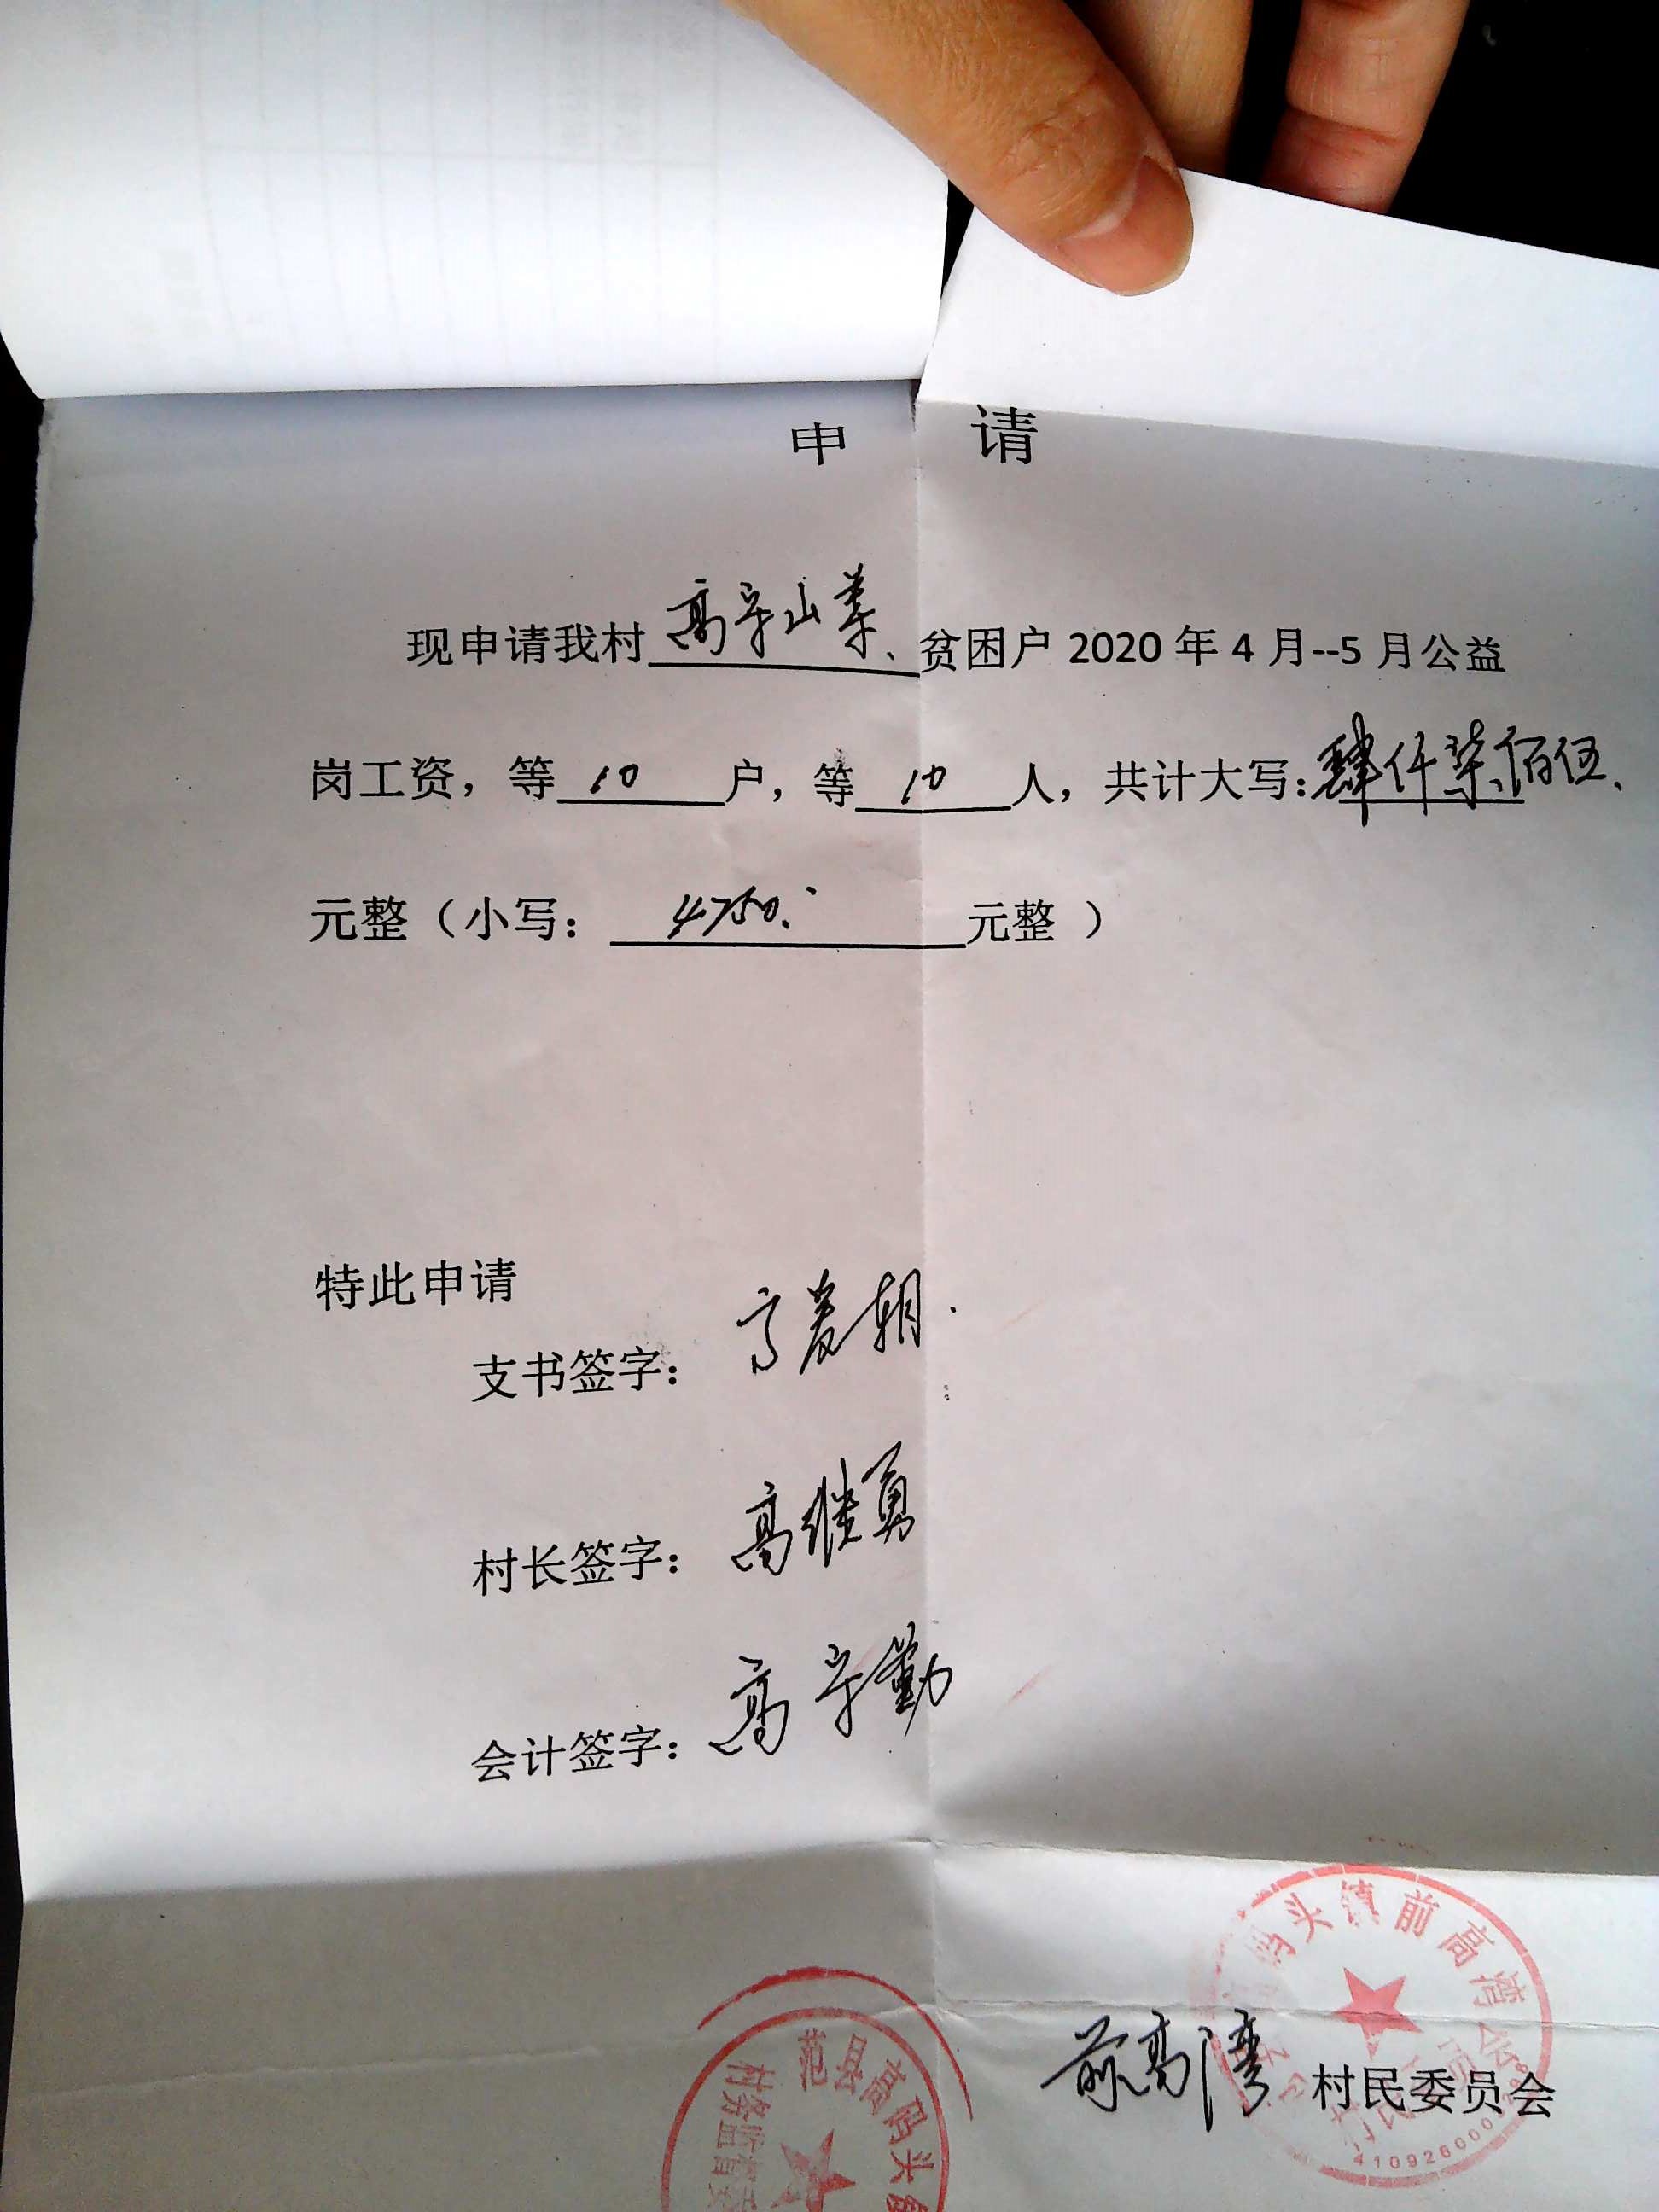 申 请
现申请我村高守山等、贫困户 2020 年 4 月--5 月公益
岗工资，等 10 户，等 10 人，共计大写：肆仟柒佰伍、
元整（小写： 4750. 元整 ）
特此申请
支书签字：
村长签字：高继勇
会计签字：高守勤
码头镇前高湾
前高湾 村民委员会
范县高码头
村务监督